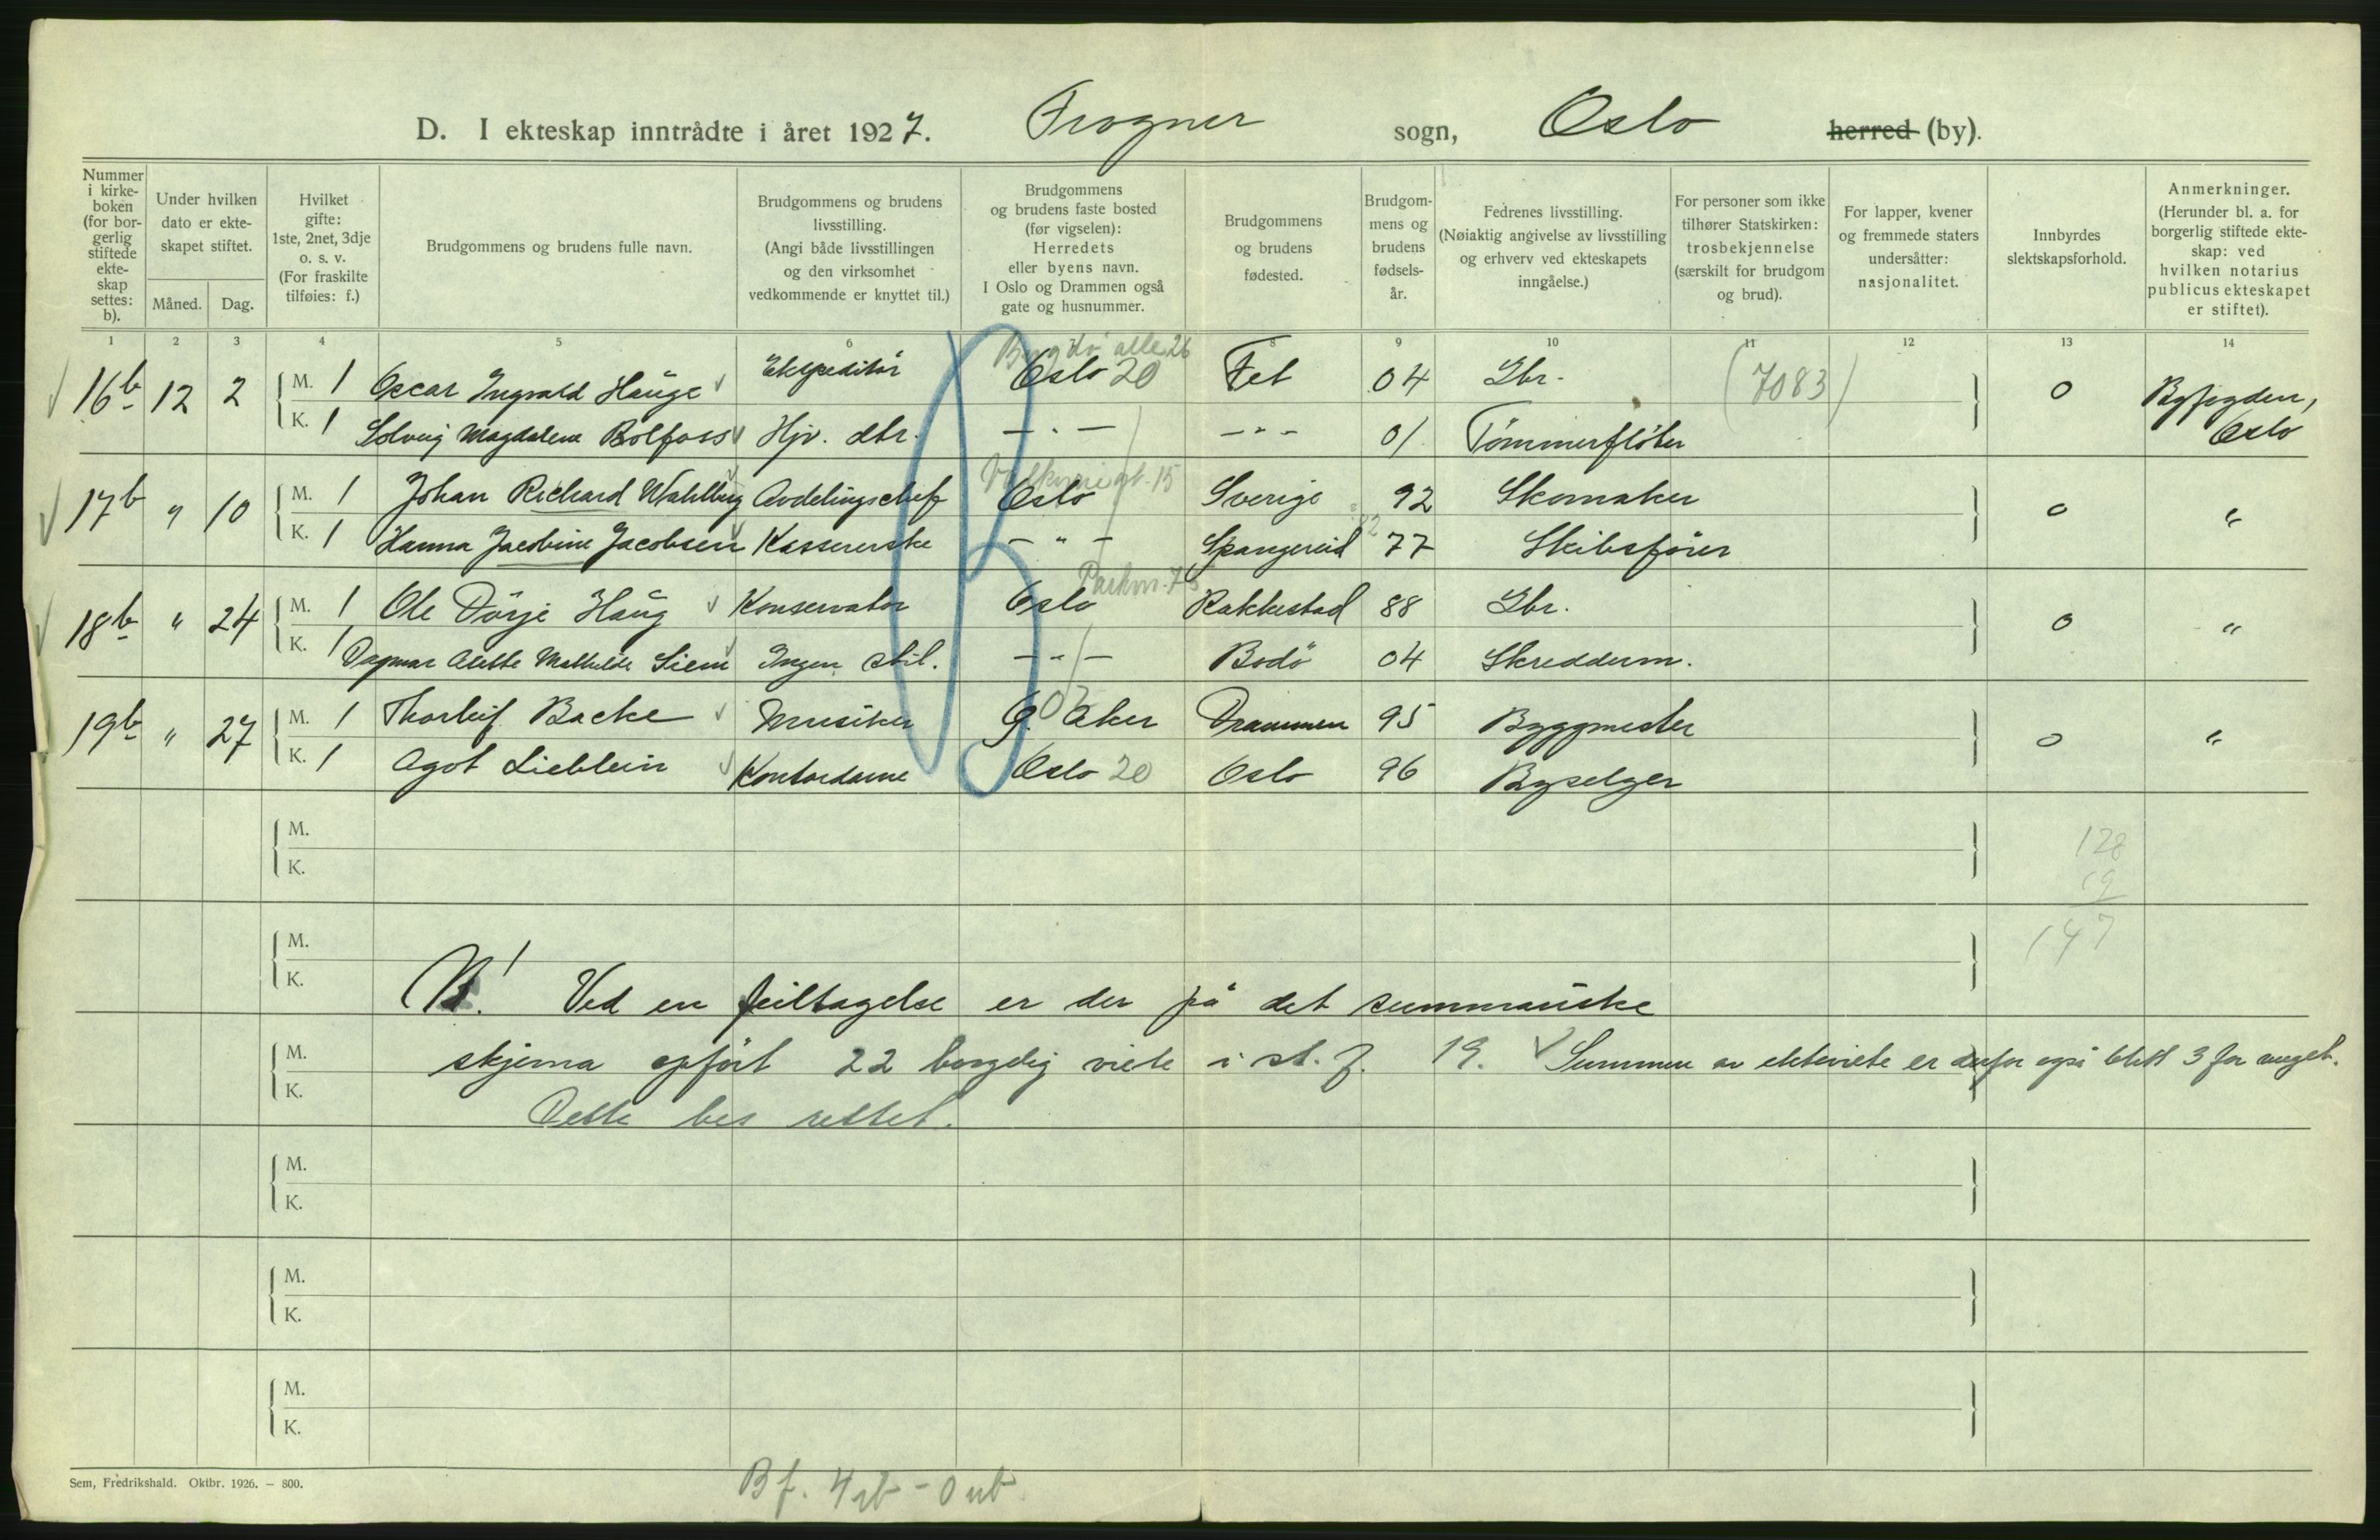 D. I ekteskap inntrådte i året 1927. Frogner sogn, Oslo herred (by).
Nummer i kirke-boken (for bor-gerlig stiftede ekte-skap settes: b).
Under hvilken dato er ekte-skapet stiftet.
Måned. Dag.
Hvilket gifte: 1ste, 2net, 3dje o. s. v. (For fraskilte tilføies: f.)
Brudgommens og brudens fulle navn.
Brudgommens og brudens livsstilling. (Angi både livsstillingen og den virksomhet vedkommende er knyttet til.)
Brudgommens og brudens faste bosted (før vigselen): Herredets eller byens navn. I Oslo og Drammen også gate og husnummer.
Brudgommens og brudens fødested.
Brudgom-mens og brudens fødsels-år.
Fedrenes livsstilling. (Nøiaktig angivelse av livsstilling og erhverv ved ekteskapets inngåelse.)
For personer som ikke tilhører Statskirken: trosbekjennelse (særskilt for brudgom og brud).
For lapper, kvener og fremmede staters undersåtter: nasjonalitet.
Innbyrdes slektskapsforhold.
Anmerkninger. (Herunder bl. a. for borgerlig stiftede ekte-skap: ved hvilken notarius publicus ekteskapet er stiftet).
1 2 3 4 5 6 8 9 10 11 12 13 14
Bygdø alle 26
16b 12 2 M. 1 Oscar Ingvald Hauge Ekspeditør Oslo 20 Fet 04 Gbr. (7083) 0 Byfogden, Oslo
K. 1 Solveig Magdalene Bolfoss Hjv. dtr. — " — — " — 01 Tømmerfløter
17b " 10 M. 1 Johan Richard Wahlberg Avdelingschef Oslo Sverige 92 Skomaker 0 "
K. 1 Hanna Jacobine Jacobsen Kassererske — " — Spangereid 77 Skibsfører
Parkv. 75
18b " 24 M. 1 Ole Dørje Haug Konservator Oslo Rakkestad 88 Gbr. 0 "
K. 1 Dagmar Alette Mathilde Siem Ingen stil. — " — Bodø 04 Skredderm.
19b " 27 M. 1 Thorleif Backe Musiker Ø. Aker Drammen 95 Byggmester 0 "
K. 1 Agot Lieblein Kontordame Oslo 20 Oslo 96 Byselger
M.
K.
128
19
147
M.
K.
NB! Ved en feiltagelse er der på det summariske
M.
skjema opført 22 borgelig viete i st. f. 19. Summen av ekteviete er derfor også blitt 3 for meget.
K.
Dette bes rettet.
M.
K.
M.
K.
M.
K.
Sem, Fredrikshald. Oktbr. 1926. – 800.
Bf. 4 ub - 0 ub